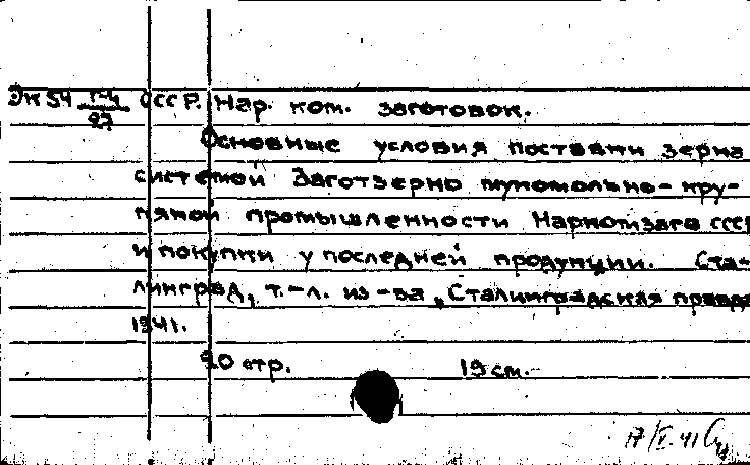 Эк 54 СССР. Нар. ком. заготовок.
27
Основные условия поставки зерна
системой Заготзерно мукомольно-кру-
пяной промышленности Наркомзага СССР
и покупки у последней продукции. Ста-
линград, т.-л. из-ва „Сталинградская правда
1941.
20 стр. 19 см.
17/V. 41